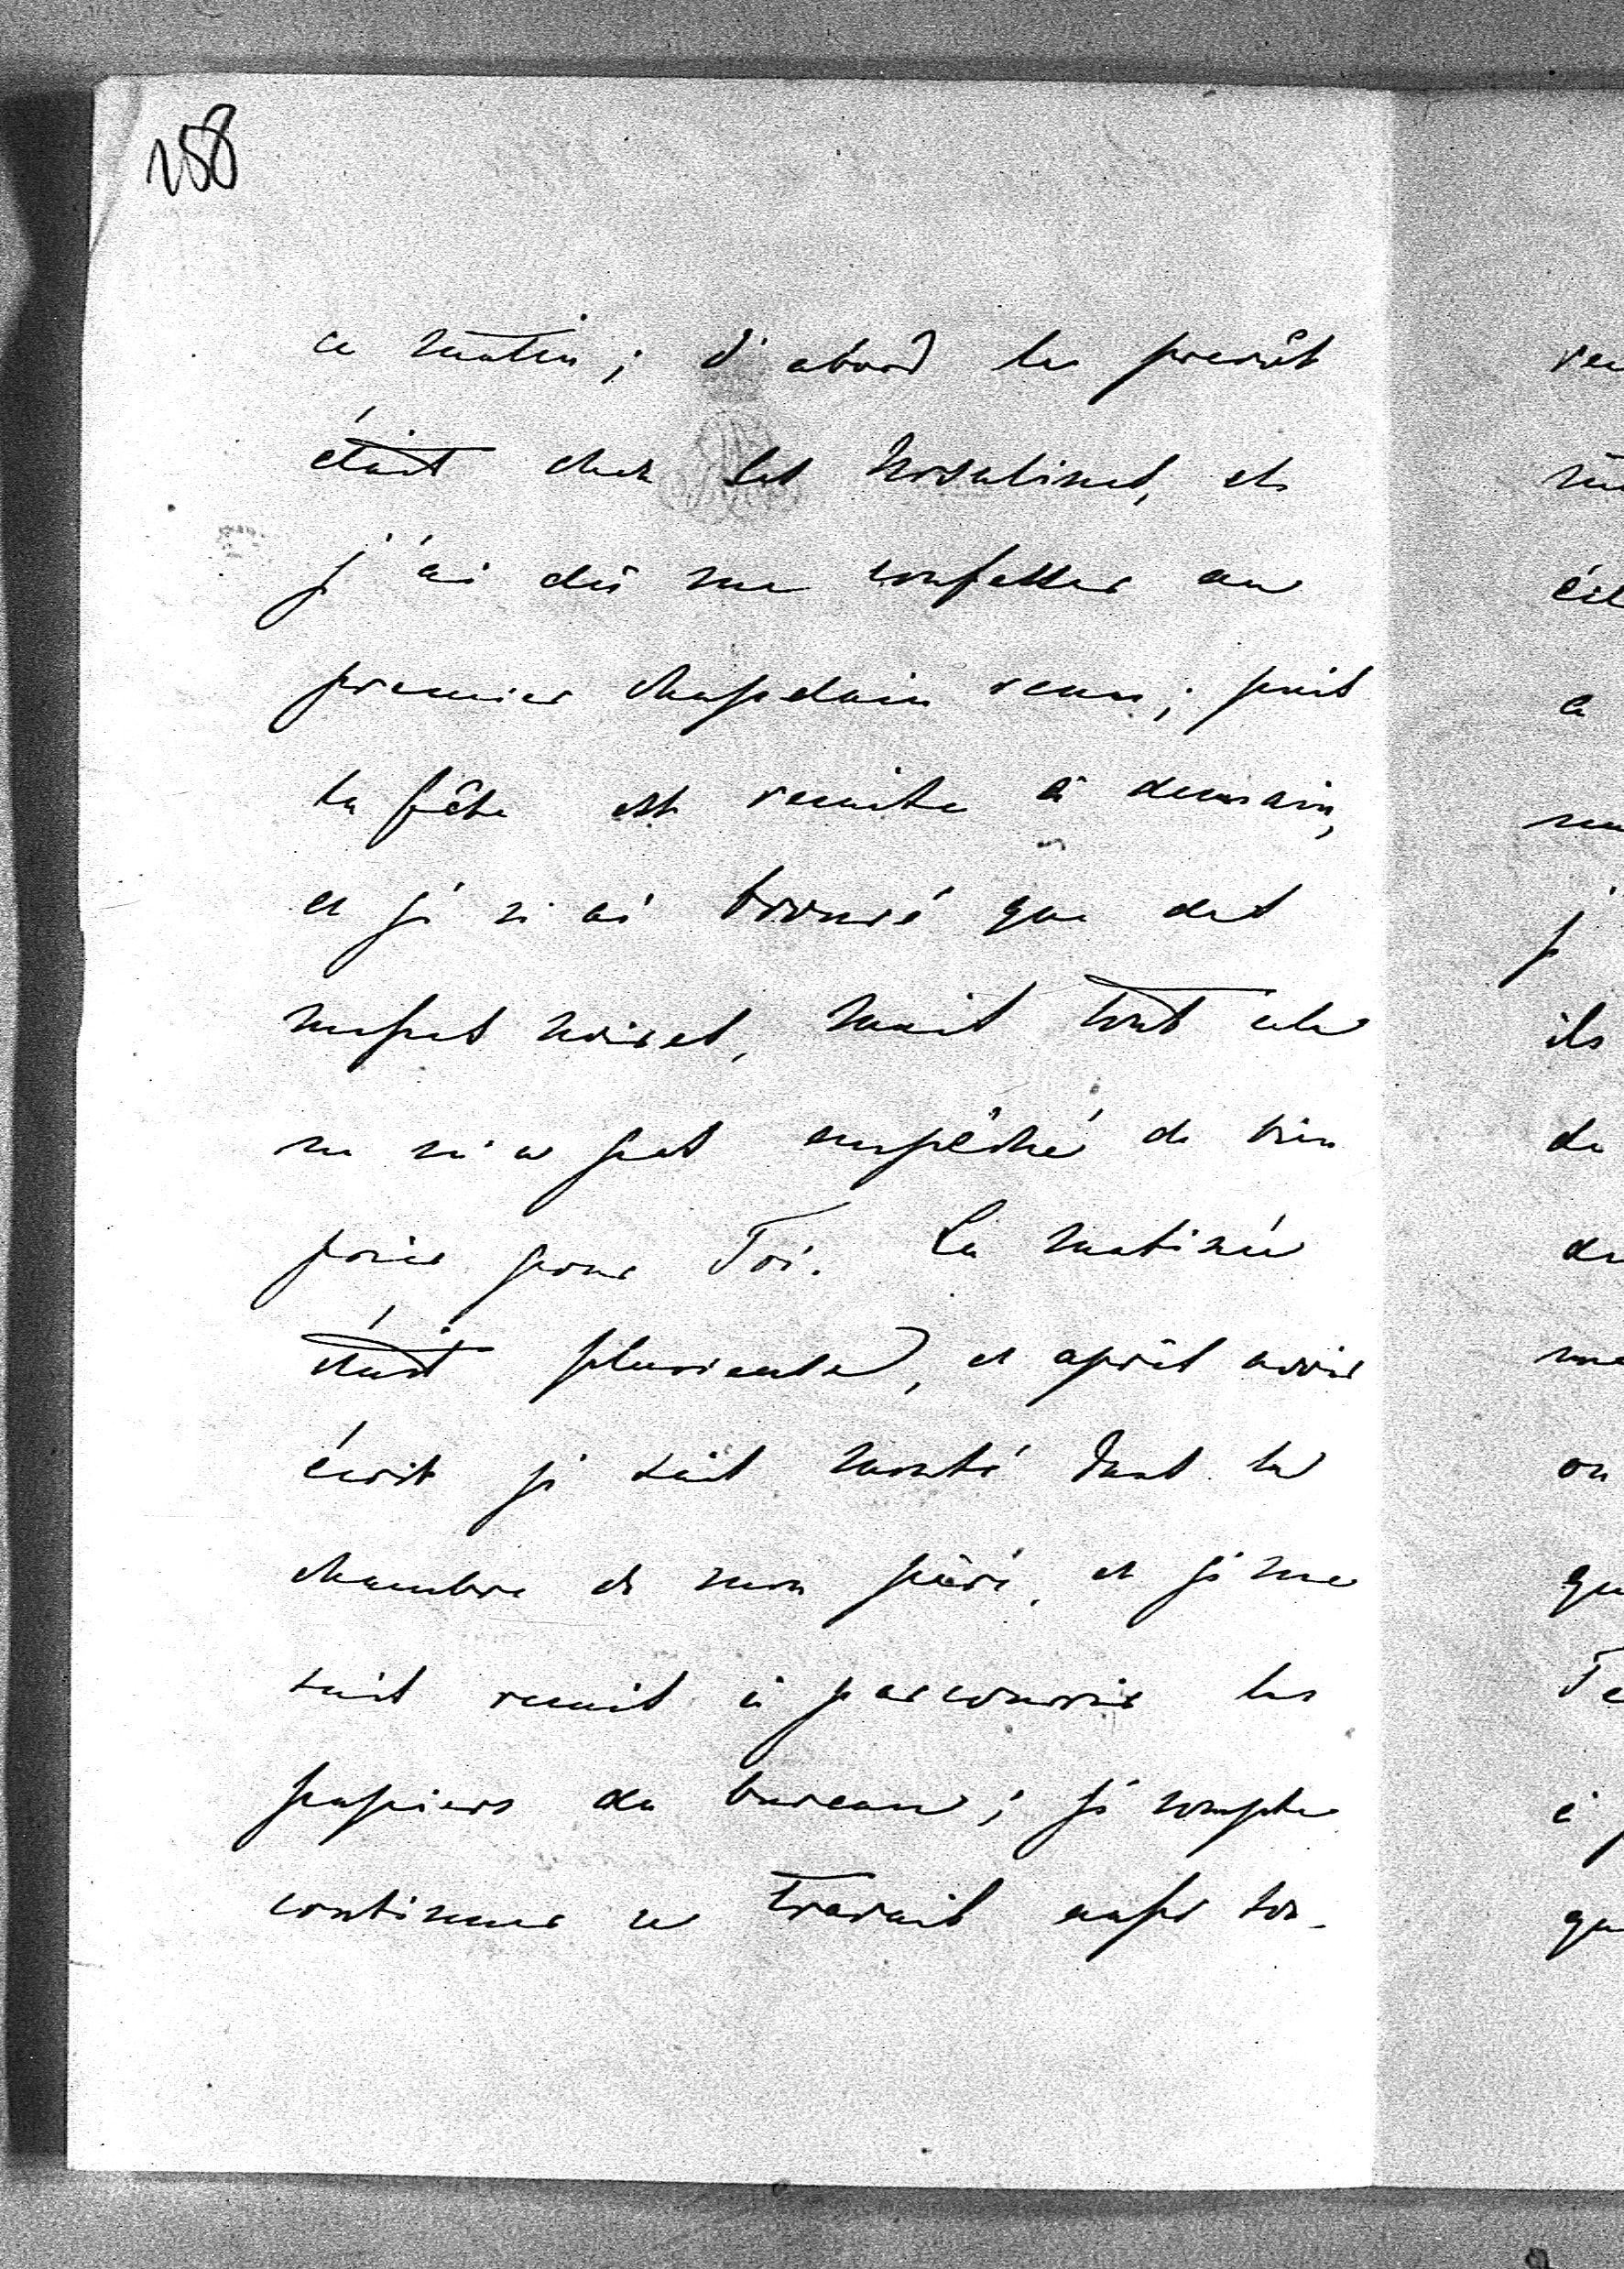 158
ce matin; d'abord le prevôt
était chez les Ursulines, et
j'ai dû me confesser au
premier chapelain venu; puis
la fête est remise à demain,
et je n'ai trouvé que des
messes noires, mais tout cela
ne m'a pas empêché de bien
prier pour Toi. La matinée
était pluvieuse, et après avoir
écrit je suis monté dans la
chambre de mon père, et je me
suis remis à parcourir les
papiers du bureau; je compte
continuer ce travail